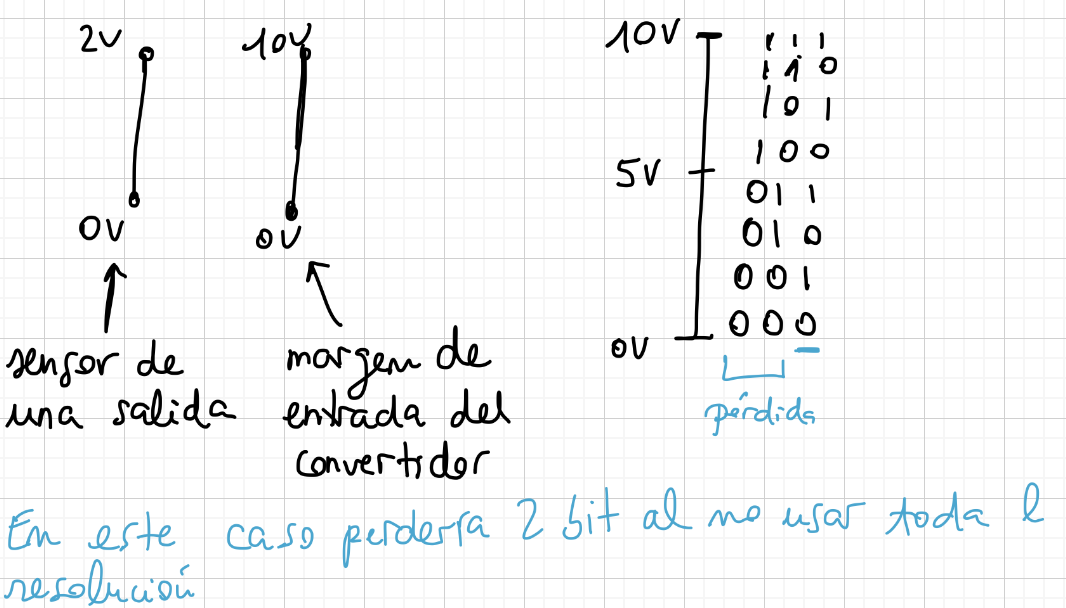 2V
10V
0V
0V
sensor de
una salida
margen de
entrada del
convertidor
10V
5V
0V
1 1 1
1 1 0
1 0 1
1 0 0
0 1 1
0 1 0
0 0 1
0 0 0
pérdida
En este caso perdería 2 bit al no usar toda l
resolución